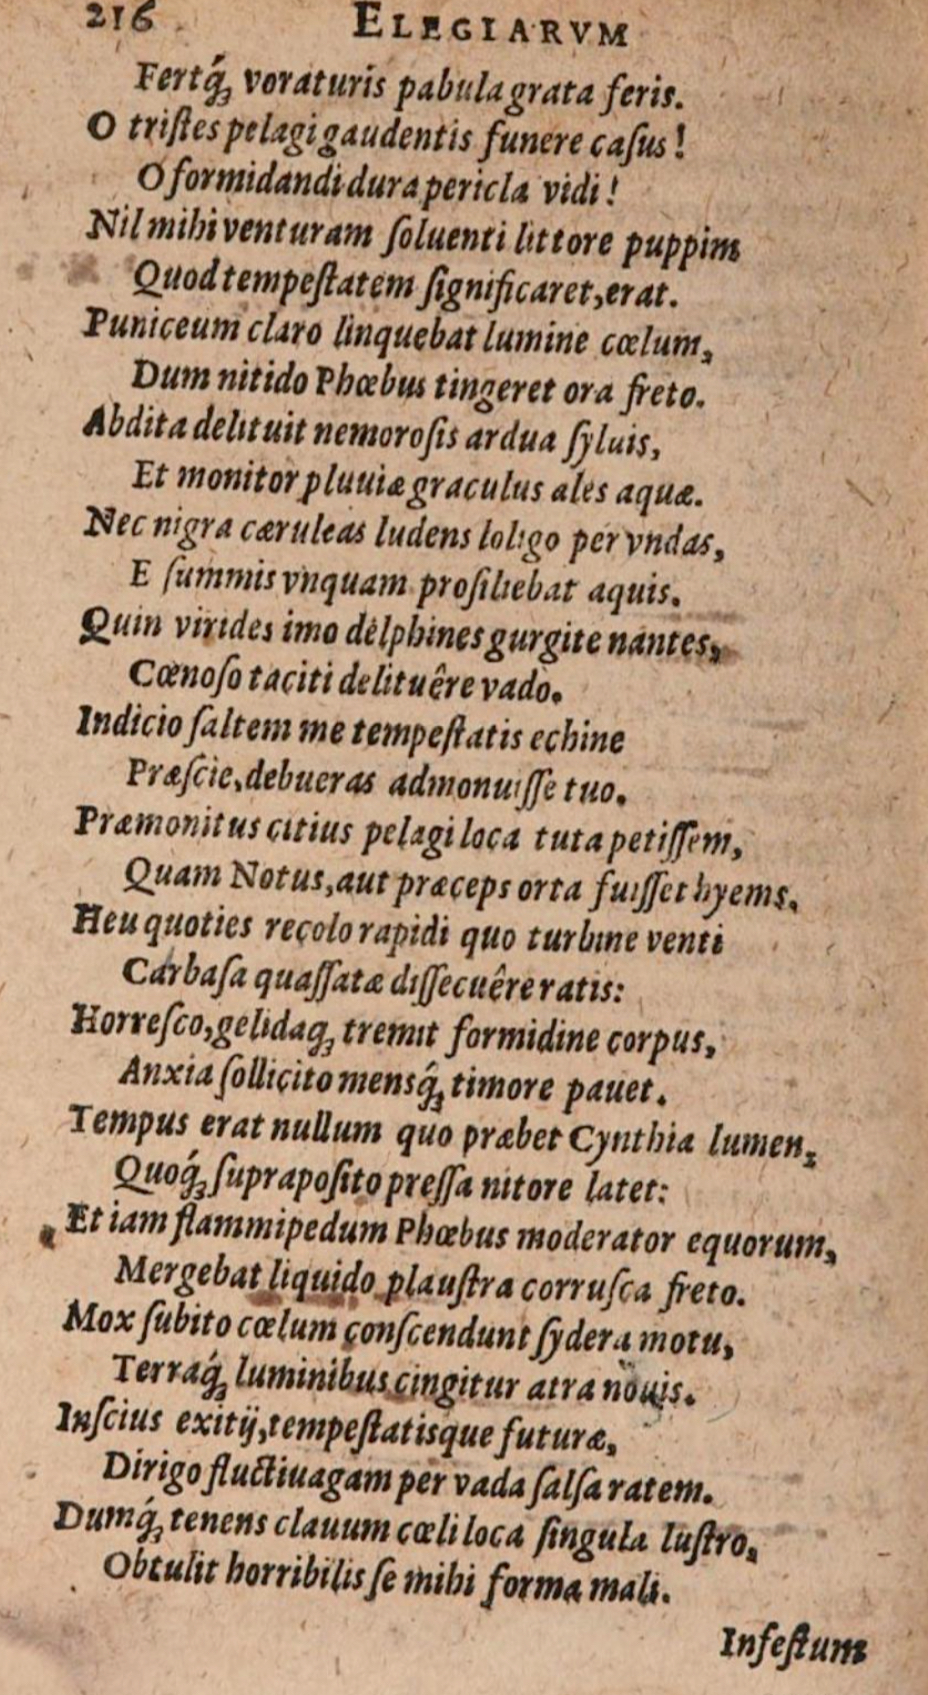 216 ELEGIARVM
Fertq́ꝫ voraturis pabula grata feris.
O triſtes pelagi gaudentis funere caſus!
O formidandi dura pericla vidi!
Nil mihi venturam ſoluenti littore puppim
Quod tempeſtatem ſignificaret, erat.
Puniceum claro linquebat lumine cœlum,
Dum nitido Phœbus tingeret ora freto.
Abdita delituit nemoroſis ardua ſyluis,
Et monitor pluuiæ graculus ales aquæ.
Nec nigra cæruleas ludens loligo per vndas,
E ſummis vnquam proſiliebat aquis.
Quin virides imo delphines gurgite nantes,
Cœnoſo taciti delituêre vado.
Indicio ſaltem me tempeſtatis echine
Præſcie, debueras admonuiſſe tuo.
Præmonitus citius pelagi loca tuta petiſſem,
Quam Notus, aut præceps orta fuiſſet hyems.
Heu quoties recolo rapidi quo turbine venti
Carbaſa quaſſatæ diſſecuêre ratis:
Horreſco, gelidaqꝫ tremit formidine corpus,
Anxia ſollicito mensq́ꝫ timore pauet.
Tempus erat nullum quo præbet Cynthia lumen,
Quoq́ꝫ ſuprapoſito preſſa nitore latet:
Et iam flammipedum Phœbus moderator equorum,
Mergebat liquido plauſtra corruſca freto.
Mox ſubito cœlum conſcendunt ſydera motu,
Terraq́ꝫ luminibus cingitur atra nouis.
Inſcius exitij, tempeſtatisque futuræ,
Dirigo fluctiuagam per vada ſalſa ratem.
Dumq́ꝫ tenens clauum cœli loca ſingula luſtro,
Obtulit horribilis ſe mihi forma mali.
Infeſtum